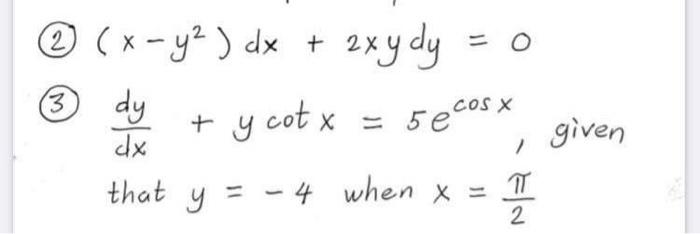 ② (x - y²) dx + 2xy dy = 0
③ dy/dx + y cot x = 5e^cos x, given
that y = - 4 when x = π/2